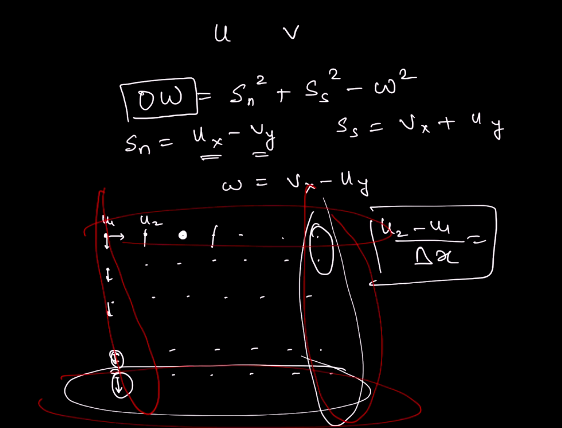 u v
OW = Sn² + Ss² - ω²
Sn = ux - vy Ss = vx + uy
ω = vx - uy
u1 u2
u2 - u1 / Δx =